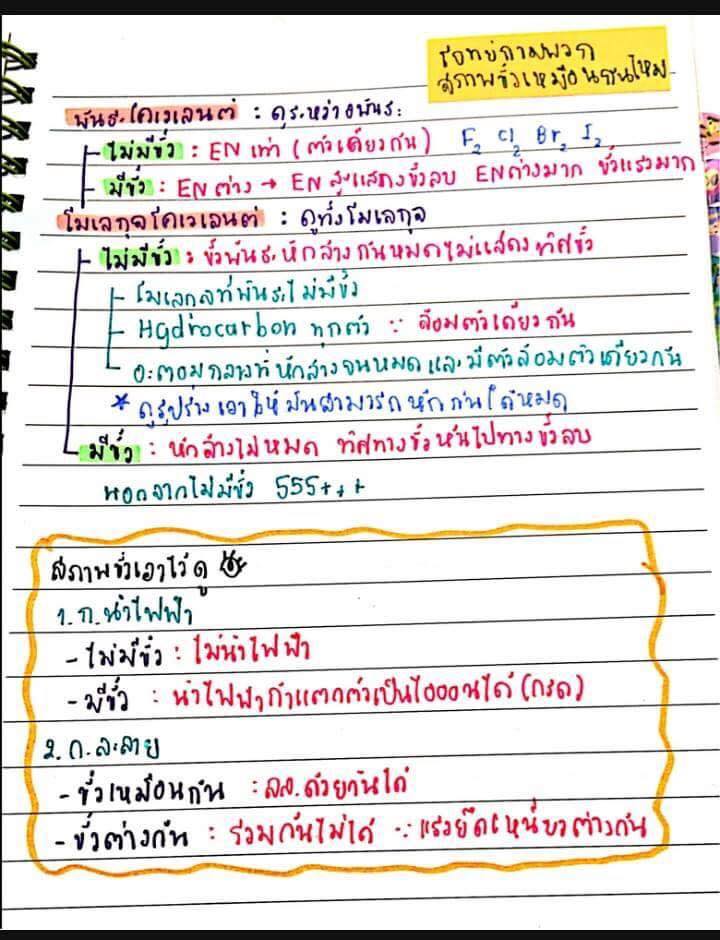 โจทย์ถามพวก
สภาพขั้วเหมือนกันไหม
พันธะโคเวเลนต์ : ดูระหว่างพันธะ
ไม่มีขั้ว : EN เท่า (ตัวเดียวกัน) F₂ Cl₂ Br₂ I₂
มีขั้ว : EN ต่าง → EN สูงแสดงขั้วลบ EN ต่างมาก ขั้วแรงมาก
โมเลกุลโคเวเลนต์ : ดูทั้งโมเลกุล
ไม่มีขั้ว : ขั้วพันธะหักล้างกันหมดไม่แสดงทิศขั้ว
โมเลกุลที่พันธะไม่มีขั้ว
Hydrocarbon ทุกตัว ∵ ล้อมตัวเดียวกัน
อะตอมกลางที่หักล้างจนหมดและมีตัวล้อมตัวเดียวกัน
* ดูรูปร่างเอาให้มันสามารถหักกันได้หมด
มีขั้ว : หักล้างไม่หมด ทิศทางขั้วหันไปทางขั้วลบ
นอกจากไม่มีขั้ว 555+++
สภาพขั้วเอาไว้ดู
1. ก.นำไฟฟ้า
- ไม่มีขั้ว : ไม่นำไฟฟ้า
- มีขั้ว : นำไฟฟ้าถ้าแตกตัวเป็นไอออนได้ (กรด)
2. ก.ละลาย
- ขั้วเหมือนกัน : ลล.ด้วยกันได้
- ขั้วต่างกัน : รวมกันไม่ได้ ∵ แรงยึดเหนี่ยวต่างกัน